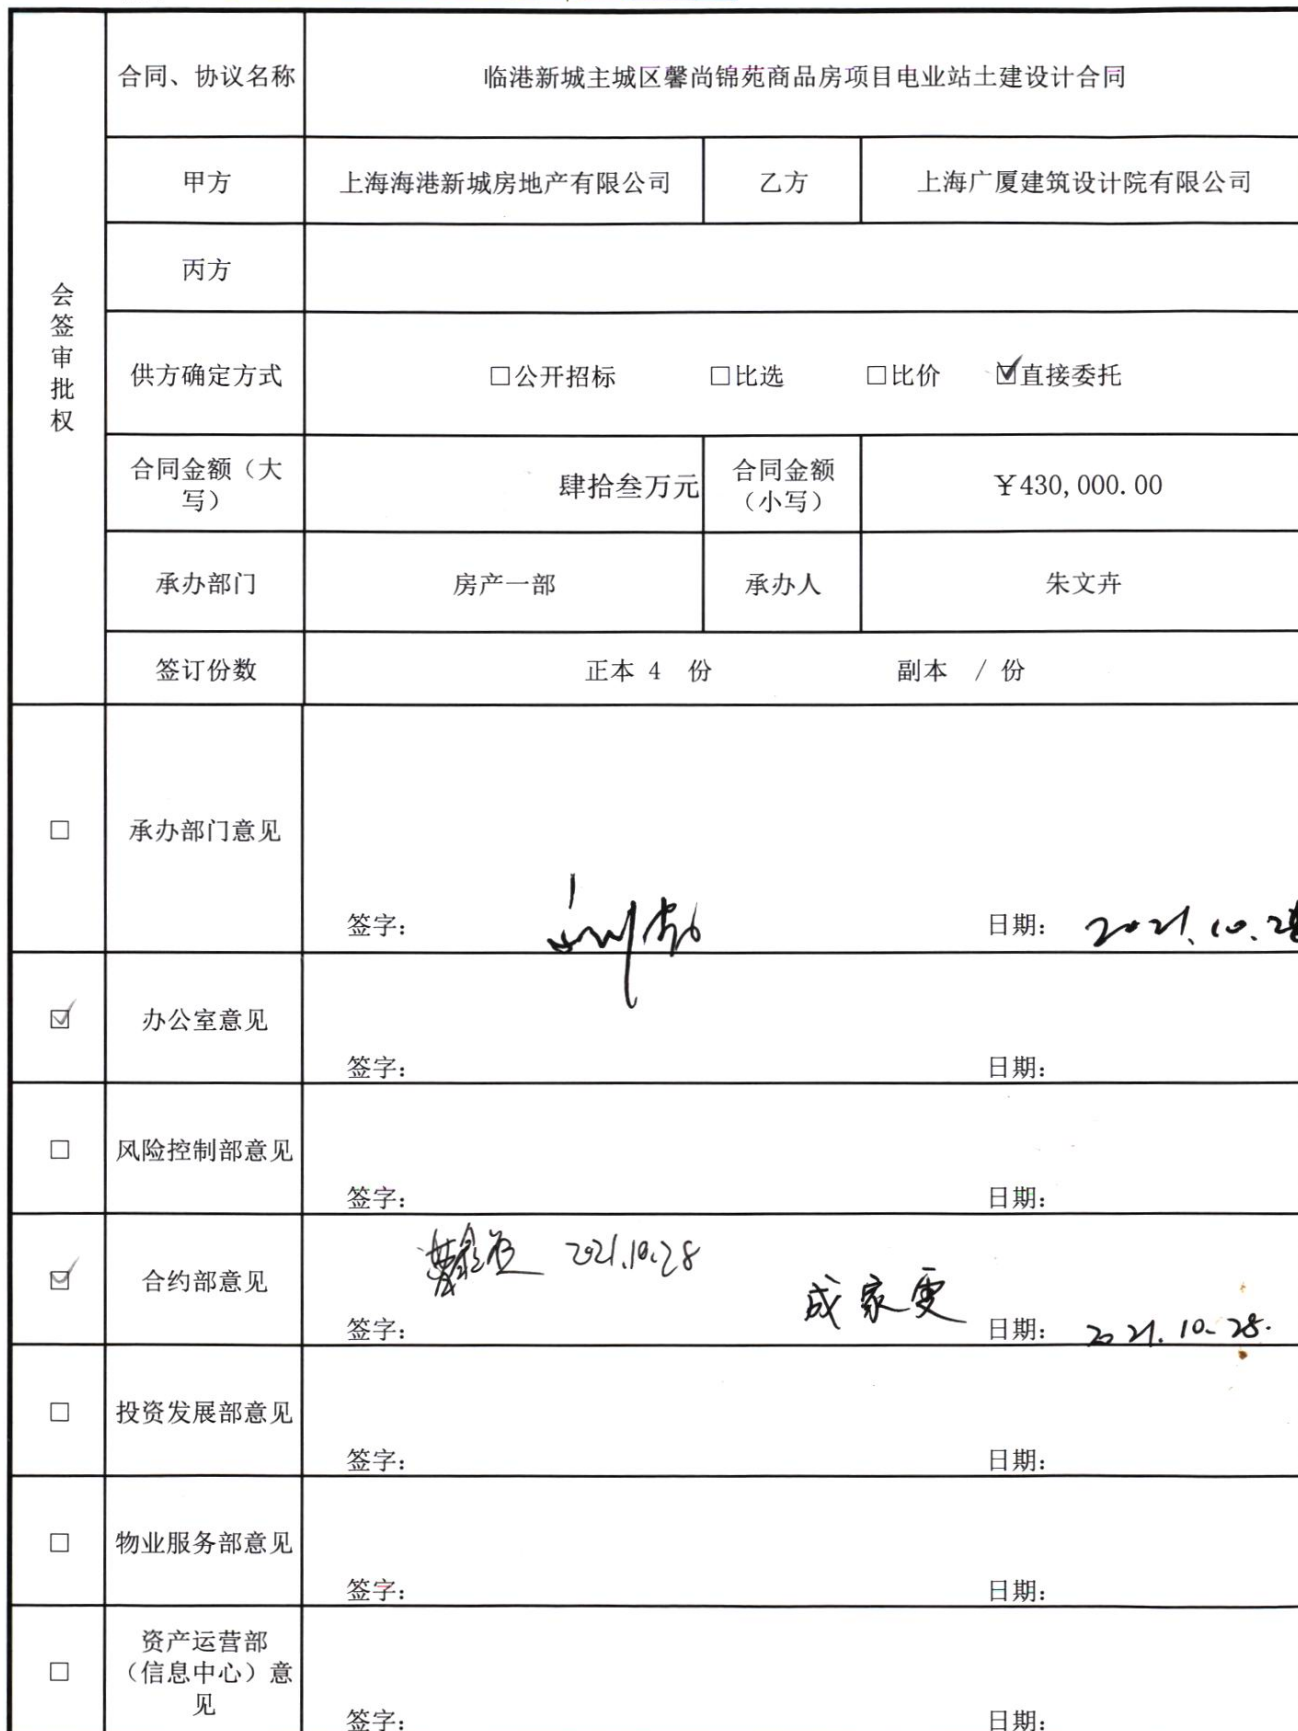 合同、协议名称 临港新城主城区馨尚锦苑商品房项目电业站土建设计合同
甲方 上海海港新城房地产有限公司 乙方 上海广厦建筑设计院有限公司
丙方
会签审批权
供方确定方式 □公开招标 □比选 □比价 ☑直接委托
合同金额(大写) 肆拾叁万元 合同金额(小写) ¥430,000.00
承办部门 房产一部 承办人 朱文卉
签订份数 正本 4 份 副本 / 份
□ 承办部门意见
签字: 日期: 2021.10.28
☑ 办公室意见
签字: 日期:
□ 风险控制部意见
签字: 日期:
2021.10.28
☑ 合约部意见
签字: 成家雯 日期: 2021.10.28.
□ 投资发展部意见
签字: 日期:
□ 物业服务部意见
签字: 日期:
□ 资产运营部(信息中心)意见
签字: 日期: